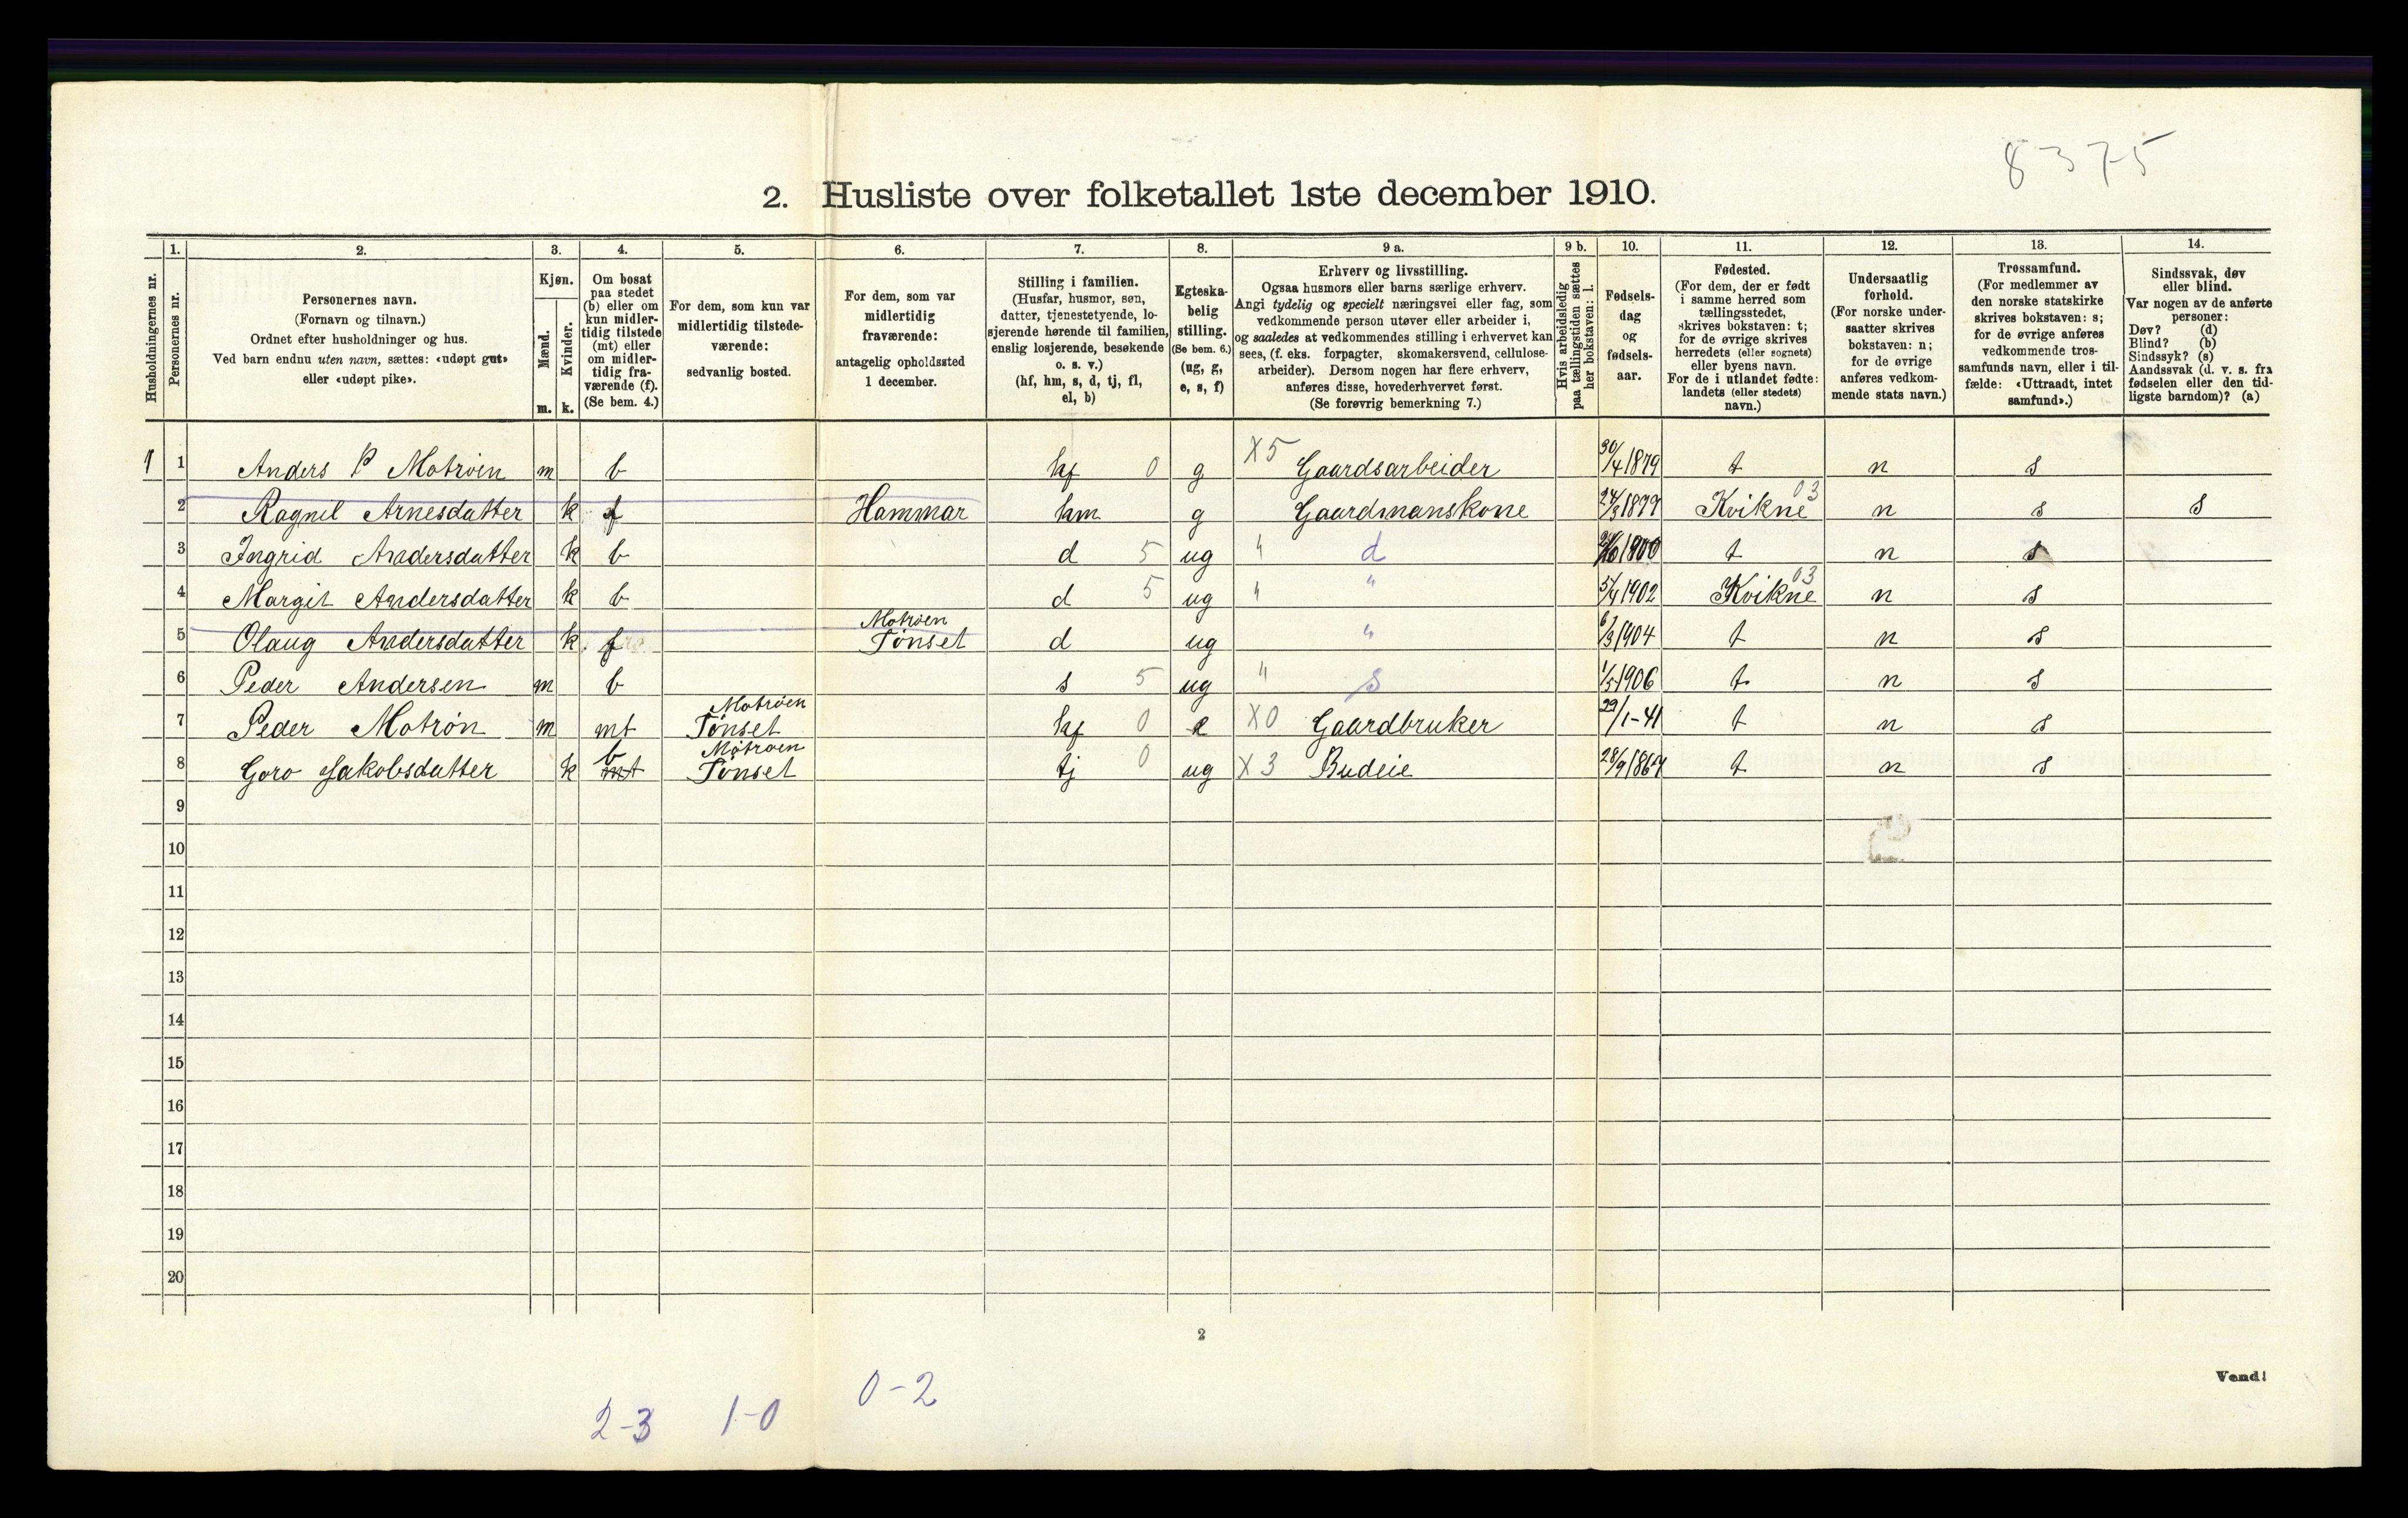 8375
2. Husliste over folketallet 1ste december 1910.
Husholdningernes nr.
1. Personernes nr.
2. Personernes navn.
(Fornavn og tilnavn.)
Ordnet efter husholdninger og hus.
Ved barn endnu uten navn, sættes: «udøpt gut»
eller «udøpt pike».
3. Kjøn.
Mænd. m.
Kvinder. k.
4. Om bosat
paa stedet
(b) eller om
kun midler-
tidig tilstede
(mt) eller
om midler-
tidig fra-
værende (f).
(Se bem. 4.)
5. For dem, som kun var
midlertidig tilstede-
værende:
sedvanlig bosted.
6. For dem, som var
midlertidig
fraværende:
antagelig opholdssted
1 december.
7. Stilling i familien.
(Husfar, husmor, søn,
datter, tjenestetyende, lo-
sjerende hørende til familien,
enslig losjerende, besøkende
o. s. v.)
(hf, hm, s, d, tj, fl,
el, b)
8. Egteska-
belig
stilling.
(Se bem. 6.)
(ug, g,
e, s, f)
9 a. Erhverv og livsstilling.
Ogsaa husmors eller barns særlige erhverv.
Angi tydelig og specielt næringsvei eller fag, som
vedkommende person utøver eller arbeider i,
og saaledes at vedkommendes stilling i erhvervet kan
sees, (f. eks. forpagter, skomakersvend, cellulose-
arbeider). Dersom nogen har flere erhverv,
anføres disse, hovederhvervet først.
(Se forøvrig bemerkning 7.)
9 b. Hvis arbeidsledig
paa tællingstiden sættes
her bokstaven: l.
10. Fødsels-
dag
og
fødsels-
aar.
11. Fødested.
(For dem, der er født
i samme herred som
tællingsstedet,
skrives bokstaven: t;
for de øvrige skrives
herredets (eller sognets)
eller byens navn.
For de i utlandet fødte:
landets (eller stedets)
navn.)
12. Undersaatlig
forhold.
(For norske under-
saatter skrives
bokstaven: n;
for de øvrige
anføres vedkom-
mende stats navn.)
13. Trossamfund.
(For medlemmer av
den norske statskirke
skrives bokstaven: s;
for de øvrige anføres
vedkommende tros-
samfunds navn, eller i til-
fælde: «Uttraadt, intet
samfund».)
14. Sindssvak, døv
eller blind.
Var nogen av de anførte
personer:
Døv? (d)
Blind? (b)
Sindssyk? (s)
Aandssvak (d. v. s. fra
fødselen eller den tid-
ligste barndom)? (a)
1 1 Anders P Motrøen m b hf 0 g X5 Gaardsarbeider 30/4 1879 t n s
2 Ragnil Arnesdatter k f Hammar hm g Gaardmanskone 24/3 1879 Kvikne 03 n s s
3 Ingrid Andersdatter k b d 5 ug " d 1900 t n s
4 Margit Andersdatter k b d 5 ug " " 5/4 1902 Kvikne 03 n s
5 Olaug Andersdatter k f Motrøen Tønset d ug " 6/3 1904 t n s
6 Peder Andersen m b s 5 ug " s 1/5 1906 t n s
7 Peder Motrøn m mt Motrøen Tønset hf 0 e X0 Gaardbruker 29/1-41 t n s
8 Goro Jakobsdatter k b mt Motrøen Tønset tj 0 ug X3 Budeie 28/9 1867 t n s
9
10
11
12
13
14
15
16
17
18
19
20
2
Vend!
2-3 1-0 0-2